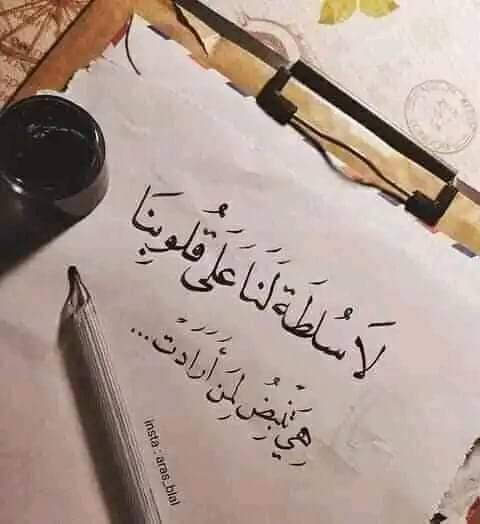 لَا سُلطَة لَنَا عَلَى قُلوبِنَا
هِيَ تَنبِضُ لِمَن أَرَادَت...
insta : aras_blal